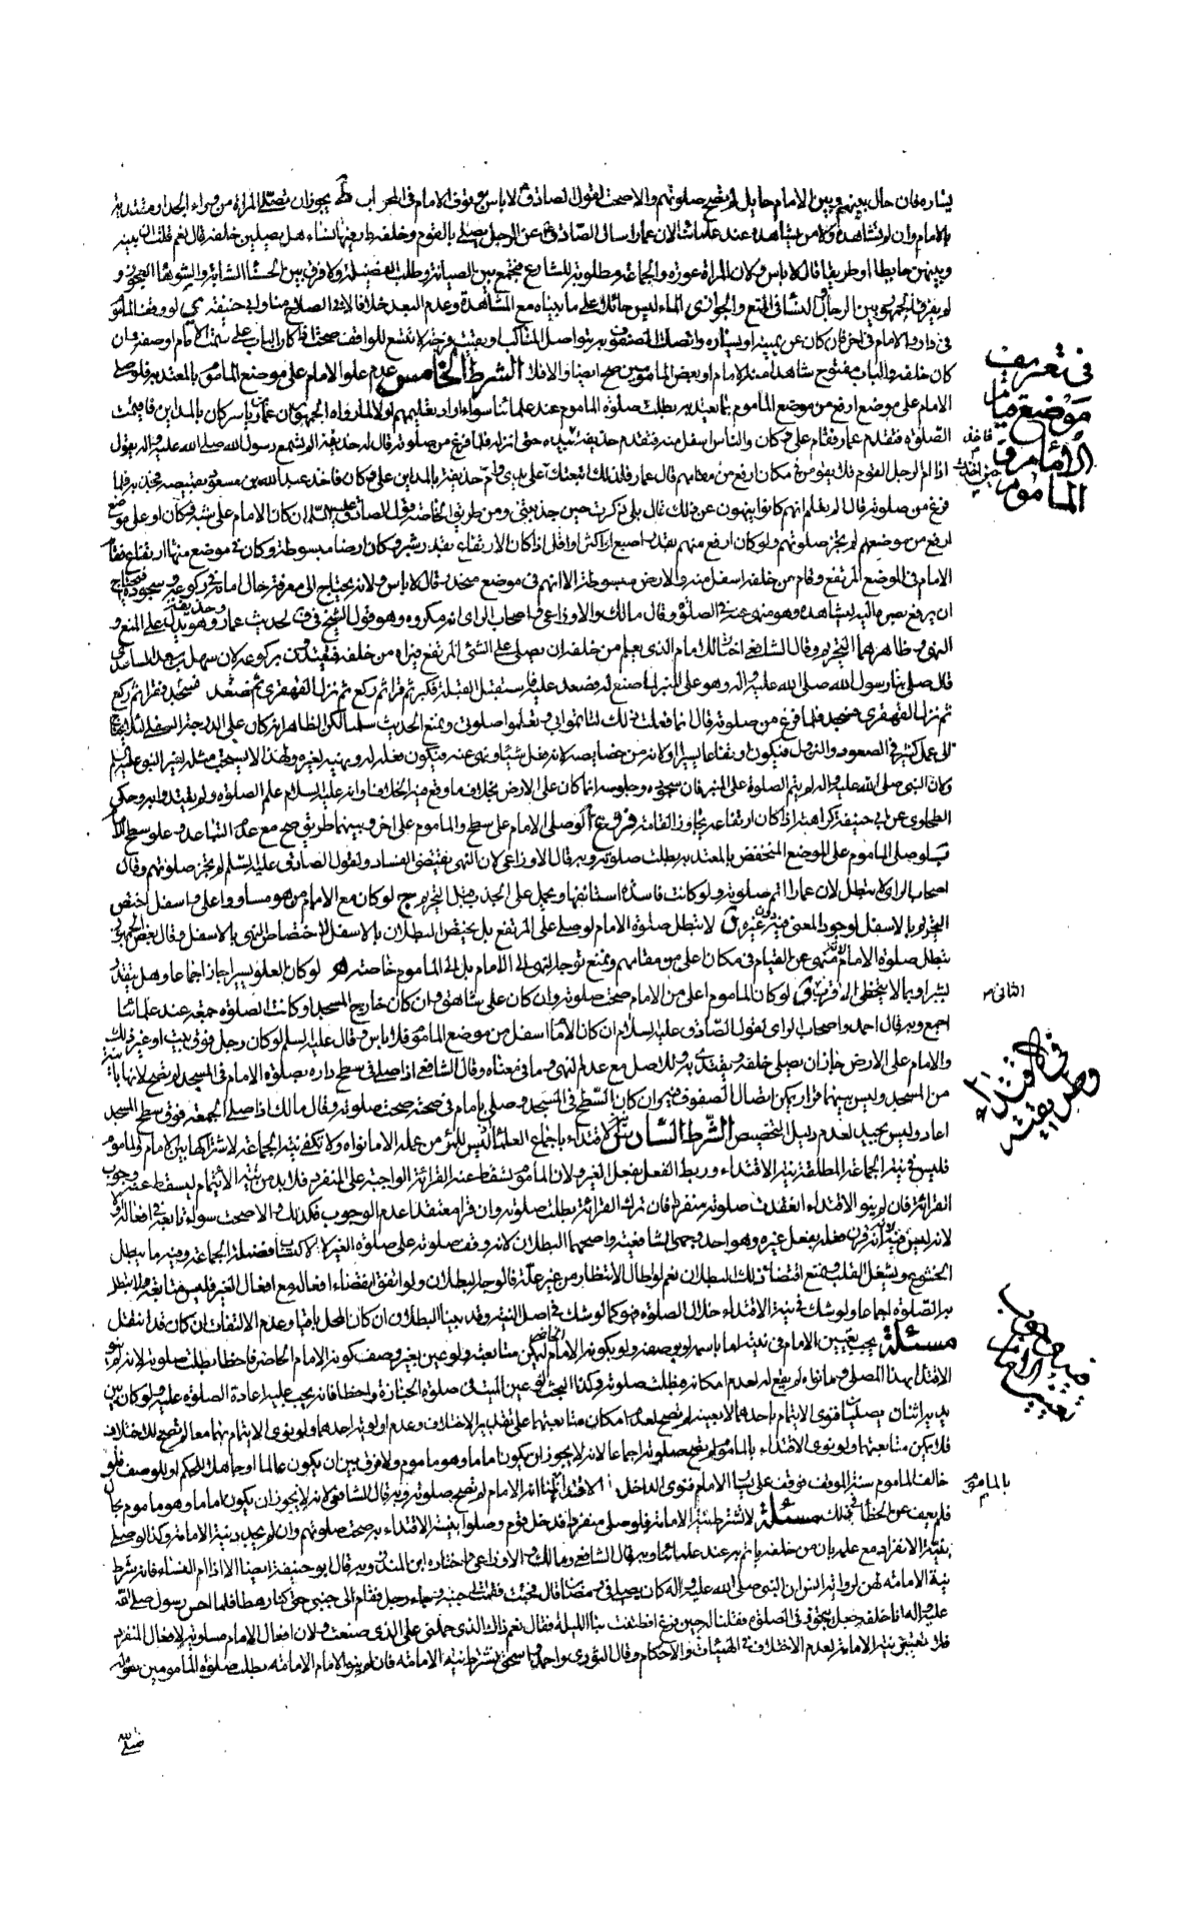 يساره فان حال بينهم وبين الامام حايل لم تصح صلوتهم والا صحت لقول الصادق لا باس بوقوف الامام في المحراب يجوز ان تصلي المراة من وراء الجدار مقتدية
بالامام وان لم تشاهده ولا من يشاهده عند علمائنا لان عمارا سال الصادق عن الرجل يصلي بالقوم وخلفه دار فيها نساء هل يصلين خلفه قال نعم قلت ان بينه
وبينهن حايطا او طريقا قال لا باس ولان المراة عورة والجماعة مطلوبة للشارع فجمع بين الصيانة وطلب الفضيلة ولا فرق بين الحسناء الشابة والشوهاء العجوز و
لم يفرق الجمهور بين الرجال والنساء في المنع والجواز الماء ليس حائلا على ما بيناه مع المشاهدة وعدم البعد خلافا لابي الصلاح منا وابي حنيفة لو وقف الماموم
في دار والامام في اخرى فان كان عن يمينه او يساره واتصلت الصفوف به بتواصل المناكب او بقيت فرجة لا تتسع للواقف صحت اذا كان الباب على سمت الامام او صفه وان
كان خلفه والباب مفتوح شاهد منه الامام او بعض المامومين صح ايضا والا فلا الشرط الخامس عدم علو الامام على موضع الماموم بما يعتد به فلو صلى
الامام على موضع ارفع من موضع الماموم بما يعتد به بطلت صلوة الماموم عند علمائنا سواء اراد تعليمهم او لا لما رواه الجمهور ان عمار بن ياسر كان بالمداين فاقيمت
الصلوة فتقدم عمار فقام على دكان والناس اسفل منه فتقدم حذيفة فاخذ بيده حتى انزله فلما فرغ من صلوته قال له حذيفة الم تسمع رسول الله صلى الله عليه واله يقول
اذا ام الرجل القوم فلا يقومن في مكان ارفع من مقامهم قال عمار فلذلك اتبعتك حين اخذت على يدي وام حذيفة بالمداين على دكان فاخذ عبد الله بن مسعود بقميصه فجذبه فلما
فرغ من صلوته قال الم تعلم انهم كانوا ينهون عن ذلك قال بلى ذكرت حين جذبتني ومن طريق الخاصة قول الصادق عليه السلام ان كان الامام على شبه دكان او على موضع
ارفع من موضعهم لم يجز صلوتهم ولو كان ارفع منهم بقدر اصبع او اكثر او اقل اذا كان الارتفاع بقدر شبر وكان ارضا مبسوطة وكان في موضع منها ارتفاع فقام
الامام في الموضع المرتفع وقام من خلفه اسفل منه والارض مبسوطة الا انهم في موضع منحدر قال لا باس ولانه يحتاج الى معرفة حال امامه في ركوعه وسجوده فيحتاج
ان يرفع بصره اليه ليشاهده وهو منهي عنه في الصلوة وقال مالك والاوزاعي واصحاب الراي انه مكروه وهو قول الشيخ في ف لحديث عمار وحذيفة وهو يدل على المنع و
النهي وظاهرهما التحريم وقال الشافعي اختار للامام الذي يعلم من خلفه ان يصلي على الشئ المرتفع فيراه من خلفه فيقتدون بركوعه لان سهل بن سعد الساعدي
قال صلى بنا رسول الله صلى الله عليه واله وهو على المنبر لما صنع له فصعد عليه فاستقبل القبلة فكبر ثم قرا ثم ركع ثم نزل القهقرى فسجد ثم صعد فقرا ثم ركع
ثم نزل القهقرى فسجد فلما فرغ من صلوته قال انما فعلت ذلك لتاتموا بي ولتعلموا صلوتي ونمنع الحديث سلمنا لكن الظاهر انه كان على الدرجة السفلى لئلا يحتاج
الى عمل كثير في الصعود والنزول فيكون ارتفاعا يسيرا او لانه من خصايصه لانه فعل شيئا ونهى عنه فيكون فعله له ونهيه لغيره ولهذا لا يستحب مثله لغير النبي عليه السلم
وكان النبي صلى الله عليه واله لم يتم الصلوة على المنبر فان سجوده وجلوسه انما كان على الارض بخلاف ما وقع فيه الخلاف او انه عليه السلم علم الصلوة ولم يقتدوا به وحكى
الطحاوي عن ابي حنيفة كراهته اذا كان ارتفاعه يجاوز القامة فروع ا لو صلى الامام على سطح والماموم على اخر وبينهما طريق صح مع عدم التباعد وعلو سطح الامام
ب لو صلى الماموم على الموضع المنخفض بالمعتد به بطلت صلوته وبه قال الاوزاعي لان النهي يقتضي الفساد ولقول الصادق عليه السلم لم يجز صلوتهم وقال
اصحاب الراي لا تبطل لان عمارا اتم صلوته ولو كانت فاسدة استانفها ويحمل على الجذب قبل التحريم ج لو كان مع الامام من هو مساو او اعلى واسفل اختص
التحريم بالاسفل لوجود المعنى فيه دون غيره د لا تبطل صلوة الامام لو صلى على المرتفع بل يختص البطلان بالاسفل لاختصاص النهي بالاسفل وقال بعض الجمهور
تبطل صلوة الامام لانه منهي عن القيام في مكان اعلى من مقامهم ونمنع توجه النهي الى الامام بل الى الماموم خاصة ه لو كان العلو يسيرا جاز اجماعا وهل يتقدر
بشبر او بما لا يتخطى الاقرب الثاني و لو كان الماموم اعلى من الامام صحت صلوته وان كان على شاهق وان كان خارج المسجد او كانت الصلوة جمعة عند علمائنا
اجمع وبه قال احمد واصحاب الراي لقول الصادق عليه السلام ان كان الامام اسفل من موضع الماموم فلا باس وقال عليه السلم لو كان رجل فوق بيت او غير ذلك
والامام على الارض جاز ان يصلي خلفه ويقتدي به وللاصل مع عدم النهي وما في معناه وقال الشافعي اذا صلى في سطح داره بصلوة الامام في المسجد لم تصح لانها باينة
من المسجد وليس بينهما قرار يمكن اتصال الصفوف فيه وان كان السطح في المسجد وصلى بامام في صحنه صحت صلوته وقال مالك اذا صلى الجمعة فوق سطح المسجد
اعاد وليس بجيد لعدم دليل التخصيص الشرط السادس نية الاقتداء باجماع العلماء اذ ليس للمرء من عمله الا ما نواه ولا تكفي نية الجماعة لاشتراكها بين الامام والماموم
فليس في نية الجماعة المطلقة نية الاقتداء وربط الفعل بفعل الغير ولان الماموم تسقط عنه القراءة الواجبة على المنفرد فلا بد من نية الائتمام ليسقط عنه وجوب
القراءة فان لم ينو الاقتداء انعقدت صلوته منفردا فان ترك القراءة بطلت صلوته وان قرا معتقدا عدم الوجوب فكذلك والا صحت سواء تابعه في افعاله او لا
لانه ليس فيه الا انه قرن فعله بفعل غيره وهو احد وجهي الشافعية واصحهما البطلان لانه وقف صلوته على صلوة الغير لا لاكتساب فضيلة الجماعة وفيه ما يبطل
الخشوع ويشغل القلب ونمنع اقتضاء ذلك البطلان نعم لو طال الانتظار من غير علة فالوجه البطلان ولو اتفق انقضاء افعاله مع افعال الغير فليس متابعة فلا تبطل
به الصلوة اجماعا ولو شك في نية الاقتداء خلال الصلوة فهو كما لو شك في اصل النية وقد بينا البطلان ان كان المحل باقيا وعدم الالتفات ان كان قد انتقل
مسئلة يجب تعيين الامام في نيته اما باسمه او بوصفه ولو بكونه الامام الحاضر ليمكن متابعته ولو عين بغير وصف كونه الامام الحاضر فاخطا بطلت صلوته لانه لم ينو
الاقتداء بهذا المصلي وما نواه لم يقع له لعدم امكانه فبطلت صلوته وكذا البحث لو عين الميت في صلوة الجنازة واخطا فانه يجب عليه اعادة الصلوة عليه ولو كان بين
يديه اثنان يصليان فنوى الائتمام باحدهما لا بعينه لم تصح لعدم امكان متابعتهما على تقدير الاختلاف وعدم اولوية احدهما ولو نوى الائتمام بهما معا لم تصح للاختلاف
فلا يمكن متابعتهما ولو نوى الاقتداء بالماموم لم تصح صلوته اجماعا لانه لا يجوز ان يكون اماما وهو ماموم ولا فرق بين ان يكون عالما او جاهلا للحكم او للوصف فلو
خالف الماموم سنة الموقف فوقف على يسار الامام فنوى الداخل الاقتداء بالماموم ظنا انه الامام لم تصح صلوته وبه قال الشافعي لانه لا يجوز ان يكون اماما وهو ماموم بحال
فلم يعف عن الخطا في ذلك مسئلة لا تشترط نية الامامة فلو صلى منفردا فدخل قوم وصلوا بنية الاقتداء به صحت صلوتهم وان لم يجدد نية الامامة وكذا لو صلى
بنية الانفراد مع علمه بان من خلفه ياتم به عند علمائنا وبه قال الشافعي ومالك والاوزاعي واختاره ابن المنذر وبه قال ابو حنيفة ايضا الا اذا ام النساء فانه شرط
نية الامامة لهن لرواية انس ان النبي صلى الله عليه واله كان يصلي في رمضان قال فجئت فقمت الى جنبه وجاء رجل فقام الى جنبي حتى كنا رهطا فلما احس رسول الله صلى الله
عليه واله انا خلفه جعل يتجوز في الصلوة فقلنا له حين فرغ افطنت بنا الليلة فقال نعم ذاك الذي حملني على الذي صنعت ولان افعال الامام مساوية لافعال المنفرد
فلا تعتبر نية الامامة لعدم الاختلاف في الهيئات والاحكام وقال الثوري واحمد واسحق يشترط نية الامامة فان لم ينو الامام الامامة بطلت صلوة المامومين بقوله
في تعريف
موضع قيام
الامام و
الماموم
فاخذ
حين اخذت
الثاني
في الاقتداء
بالماموم
صلى الله